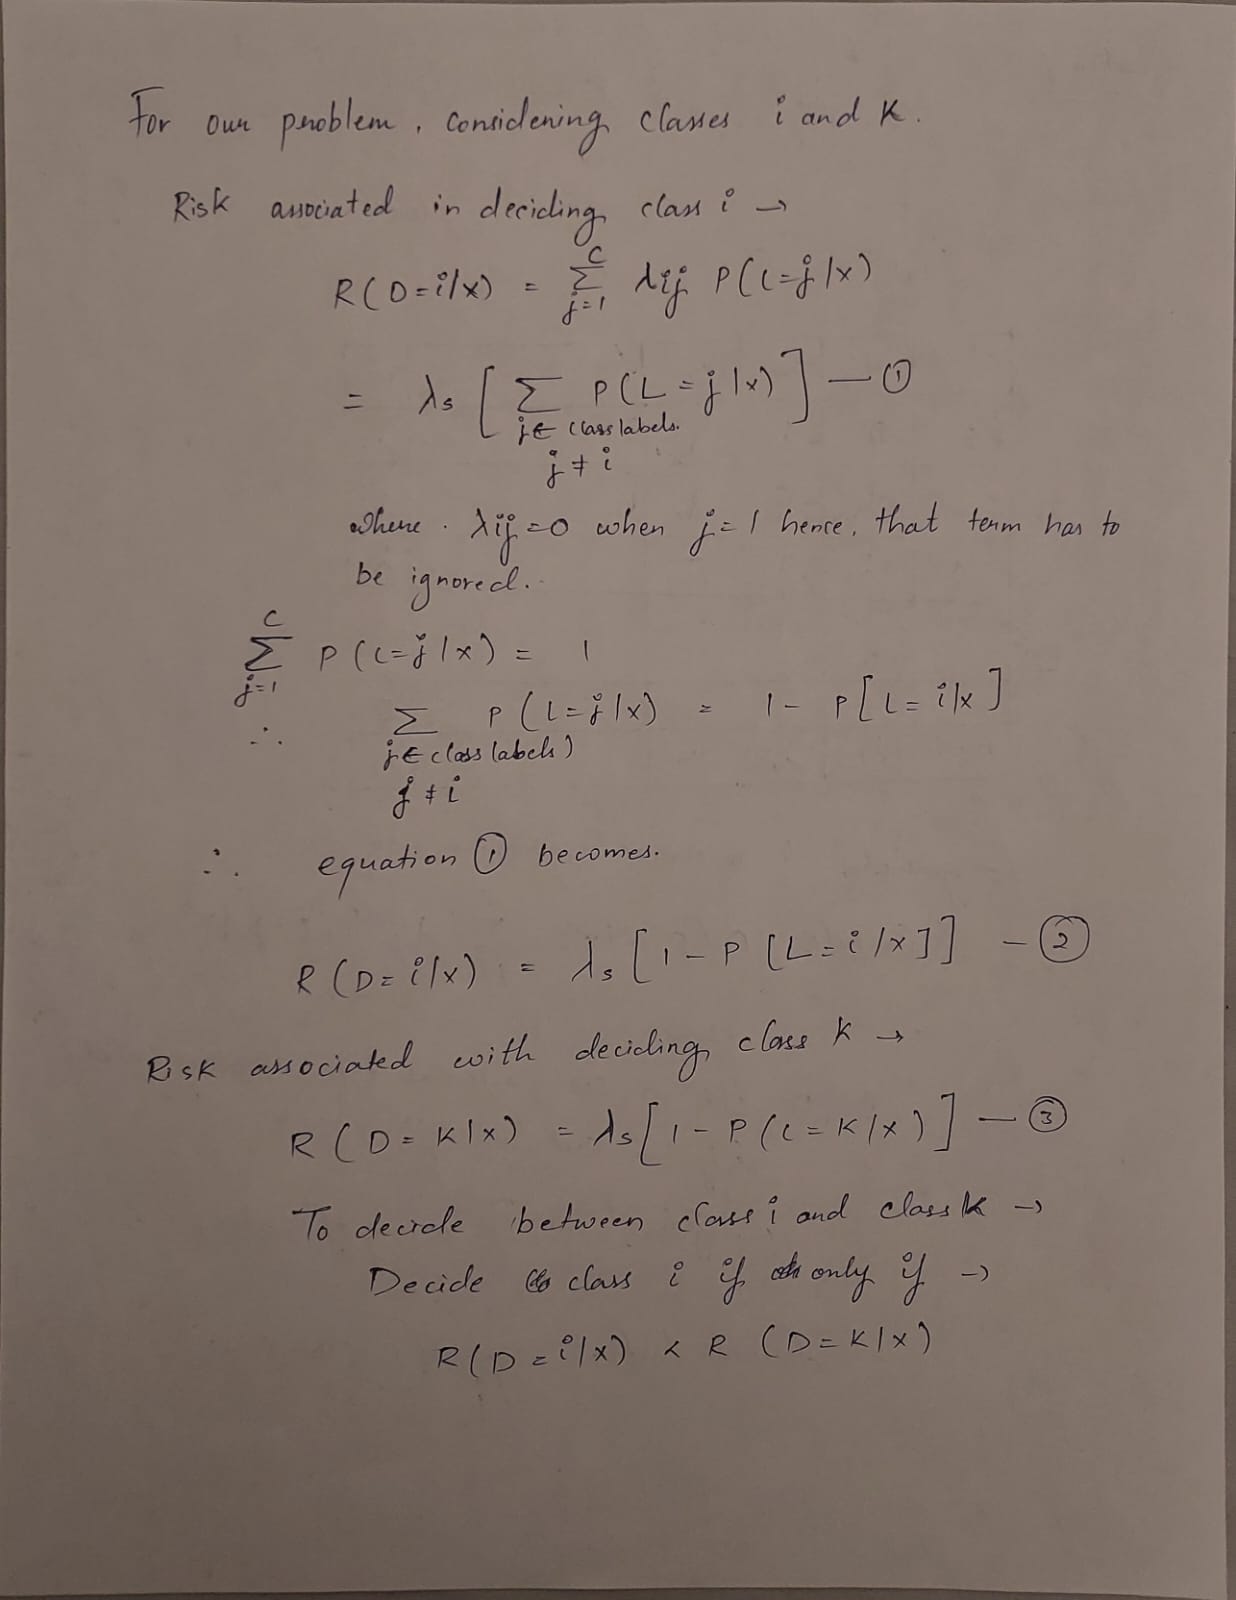 For our problem, considering classes i and K.
Risk associated in deciding class i →
R(D=i/x) = Σ_{j=1}^{C} λij P(L=j/x)
= λs [ Σ P(L=j/x) ] — ①
j∈ class labels.
j≠i
where. λij=0 when j=1 hence, that term has to
be ignored.
Σ_{j=1}^{C} P(L=j/x) = 1
∴ Σ P(L=j/x) = 1- P[L=i/x]
j∈ class labels)
j≠i
∴ equation ① becomes.
R(D=i/x) = λs [1-P [L=i/x]] — ②
Risk associated with deciding class K →
R(D=K|x) = λs[1-P(L=K/x)] — ③
To decide between class i and class K →
Decide class i if only if →
R(D=i/x) < R (D=K/x)